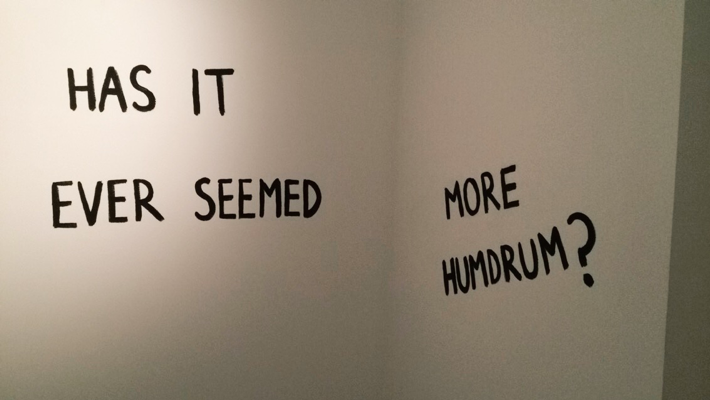 HAS IT
EVER SEEMED
MORE
HUMDRUM?